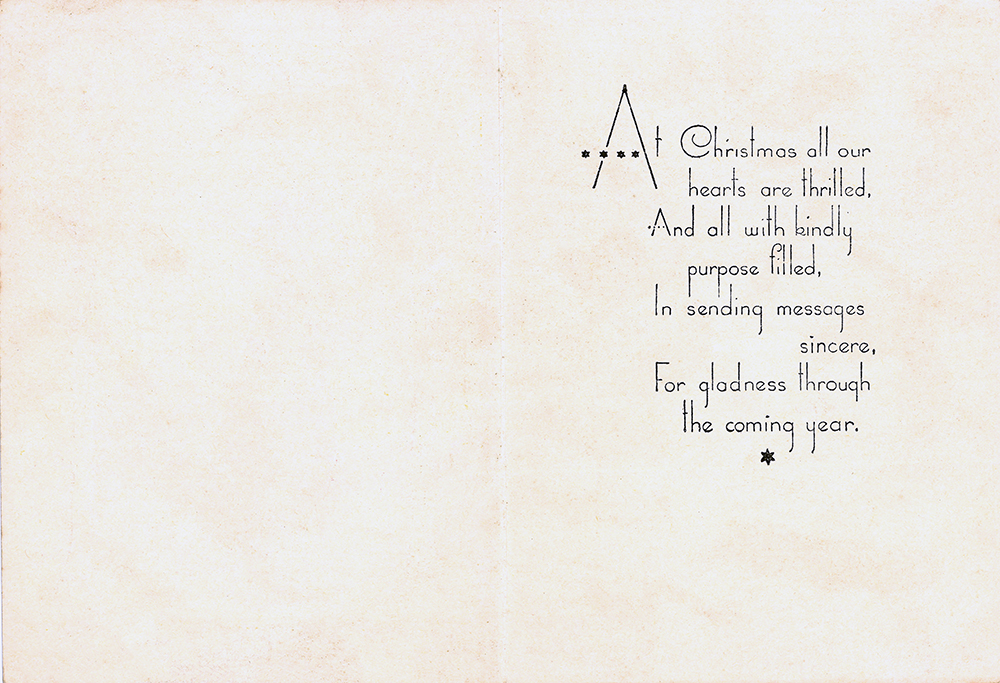 At Christmas all our
hearts are thrilled,
And all with kindly
purpose filled,
In sending messages
sincere,
For gladness through
the coming year.